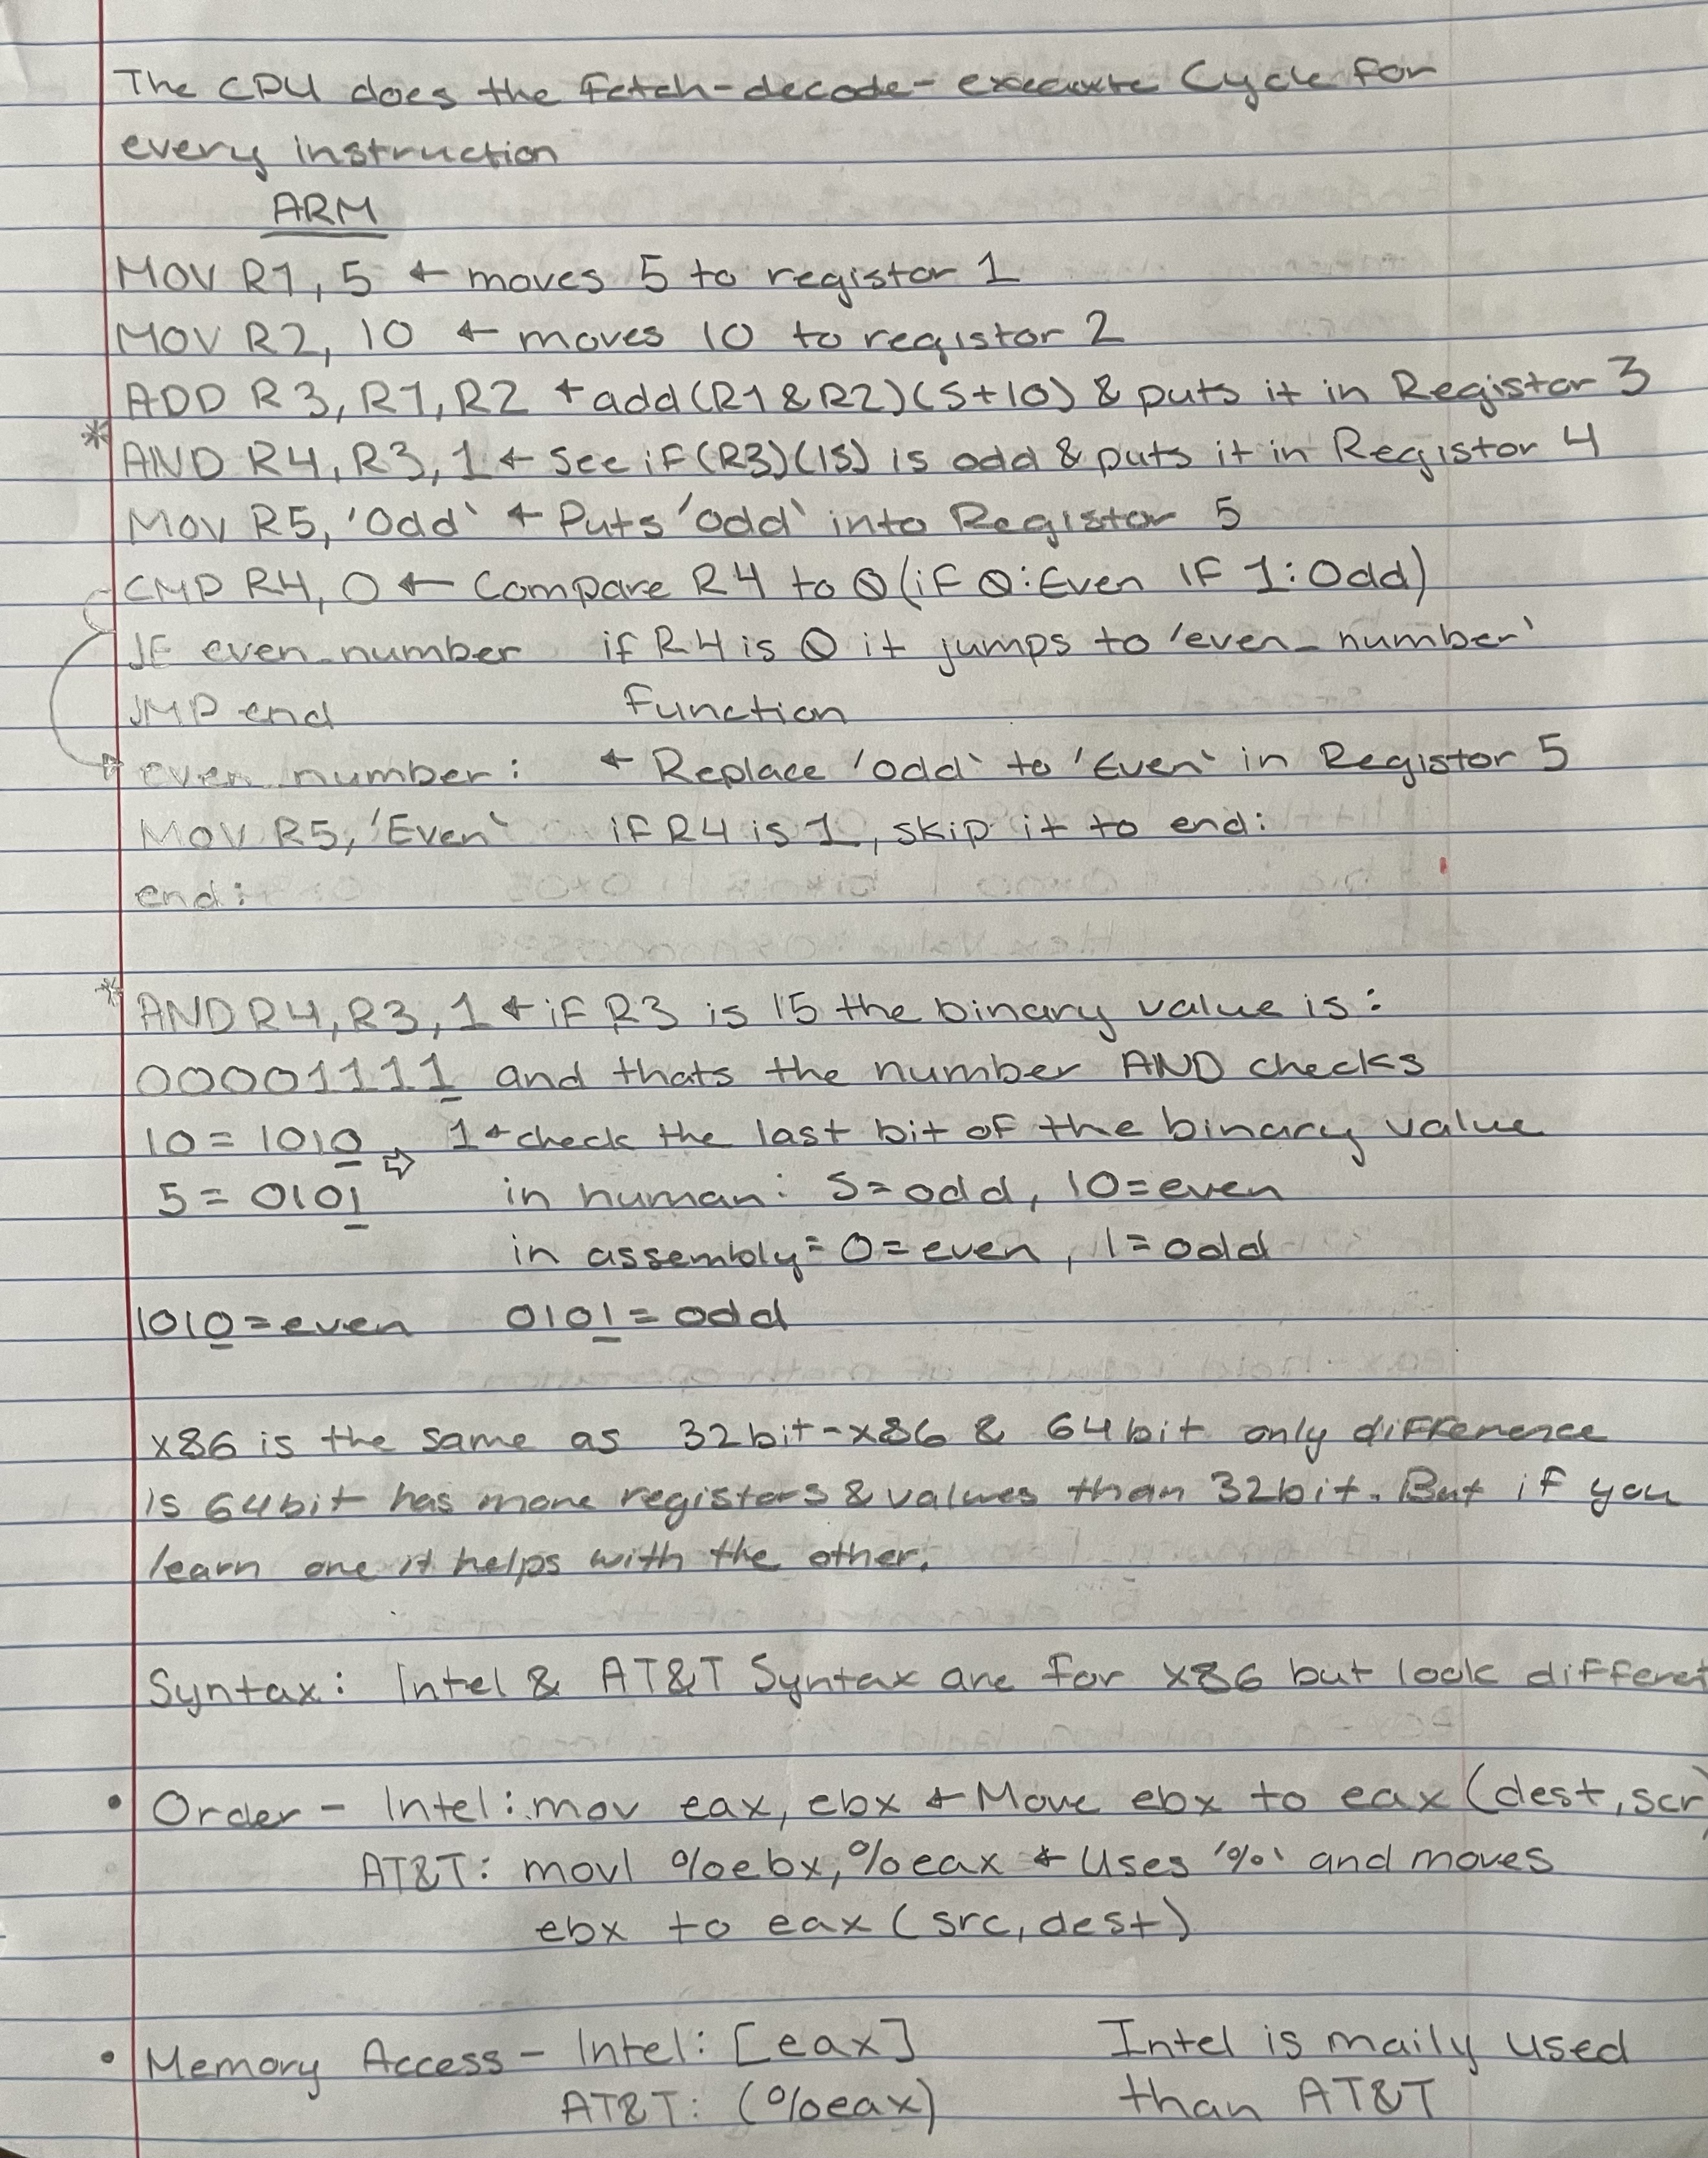 The CPU does the fetch-decode-execute cycle for
every instruction
ARM
MOV R1, 5 ← moves 5 to registor 1
MOV R2, 10 ← moves 10 to registor 2
ADD R3, R1, R2 ← add (R1 & R2) (5+10) & puts it in Registor 3
* AND R4, R3, 1 ← See if (R3)(15) is odd & puts it in Registor 4
MOV R5, 'Odd' ← Puts 'odd' into Registor 5
CMP R4, 0 ← Compare R4 to 0 (if 0: Even if 1: Odd)
JE even_number if R4 is 0 it jumps to 'even_number'
JMP end Function
even_number: ← Replace 'odd' to 'Even' in Registor 5
MOV R5, 'Even' if R4 is 1, skip it to end:
end:
* AND R4, R3, 1 ← if R3 is 15 the binary value is:
00001111 and thats the number AND checks
10 = 1010 ⇒ 1 ← check the last bit of the binary value
5 = 0101 in human: 5=odd, 10=even
in assembly: 0=even, 1=odd
1010=even 0101=odd
x86 is the same as 32bit-x86 & 64bit only difference
is 64bit has more registors & values than 32bit. But if you
learn one it helps with the other.
Syntax: Intel & AT&T Syntax are for x86 but look differen
• Order - Intel: mov eax, ebx ← Move ebx to eax (dest, scr)
AT&T: movl %ebx, %eax ← Uses '%' and moves
ebx to eax (src, dest)
• Memory Access - Intel: [eax] Intel is maily used
AT&T: (%eax) than AT&T